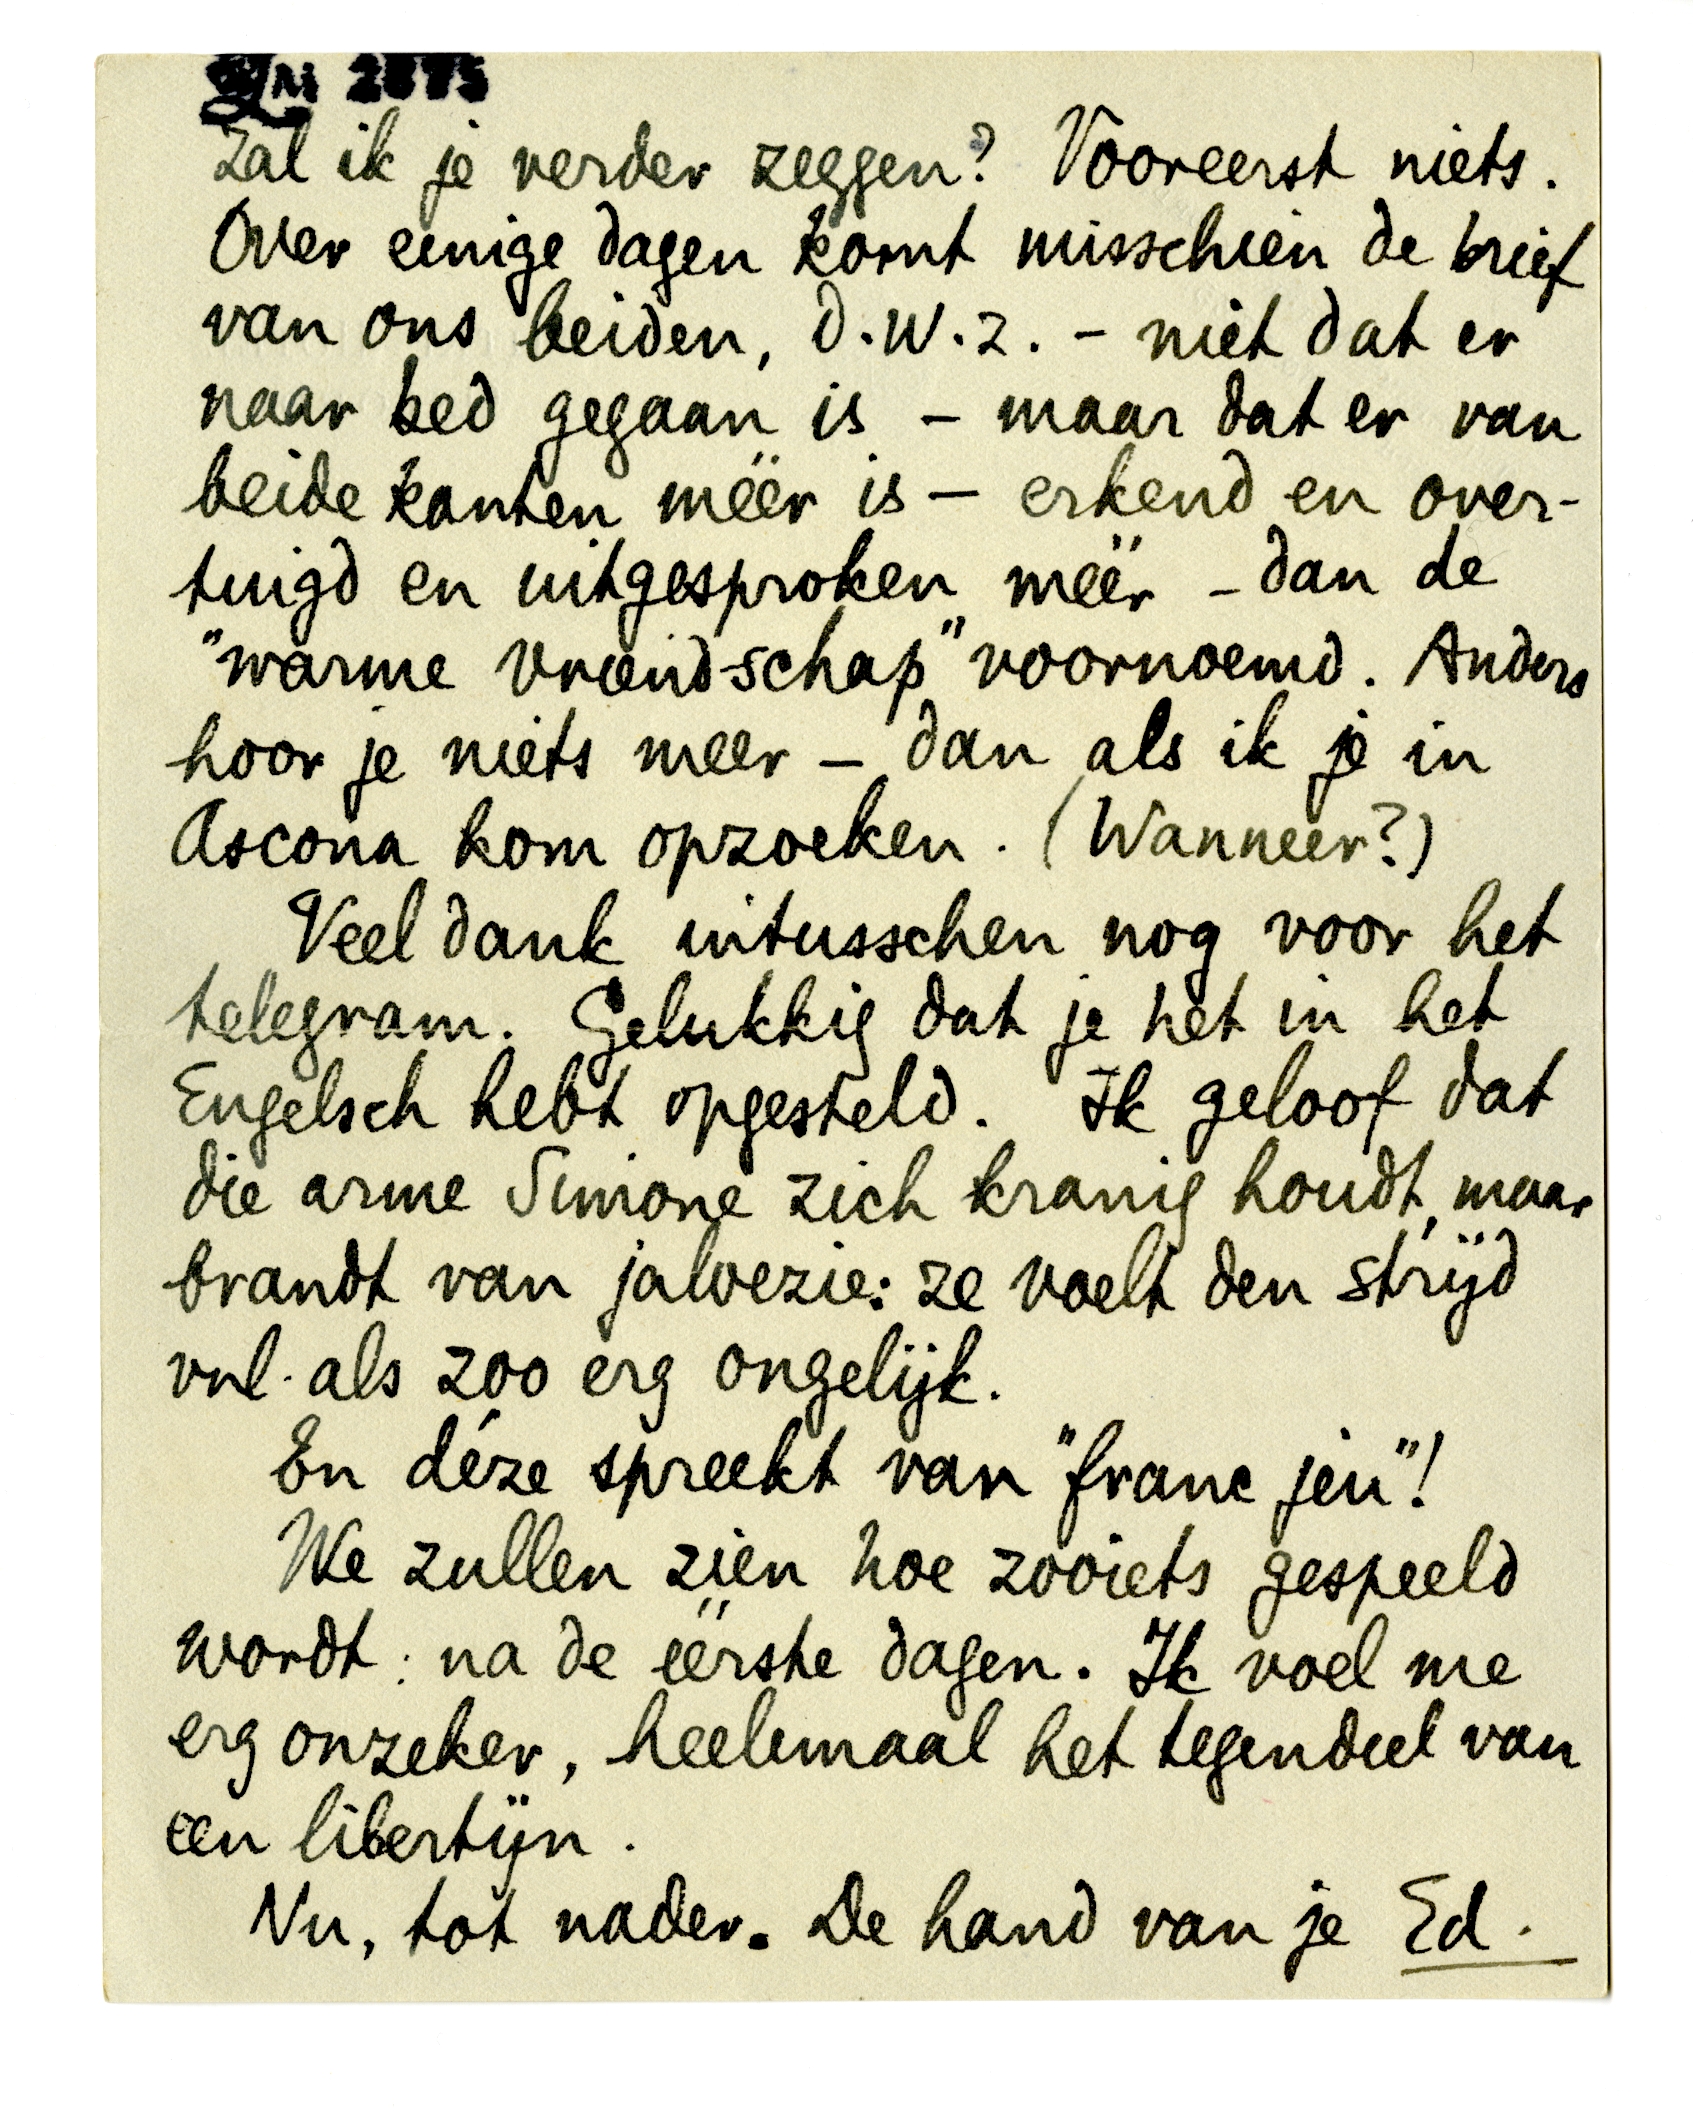 2875
Zal ik je verder zeggen? Vooreerst niets.
Over eenige dagen komt misschien de brief
van ons beiden, d.w.z. – niet dat er
naar bed gegaan is – maar dat er van
beide kanten méér is – erkend en over-
tuigd en uitgesproken méér – dan de
"warme vriendschap" voornoemd. Anders
hoor je niets meer – dan als ik je in
Ascona kom opzoeken. (Wanneer?)
Veel dank intusschen nog voor het
telegram. Gelukkig dat je het in het
Engelsch hebt opgesteld. Ik geloof dat
die arme Simone zich kranig houdt, maar
brandt van jaloezie: ze voelt den strijd
vnl. als zoo erg ongelijk.
En déze spreekt van "franc jeu"!
We zullen zien hoe zooiets gespeeld
wordt: na de éérste dagen. Ik voel me
erg onzeker, heelemaal het tegendeel van
een libertijn.
Nu, tot nader. De hand van je Ed.